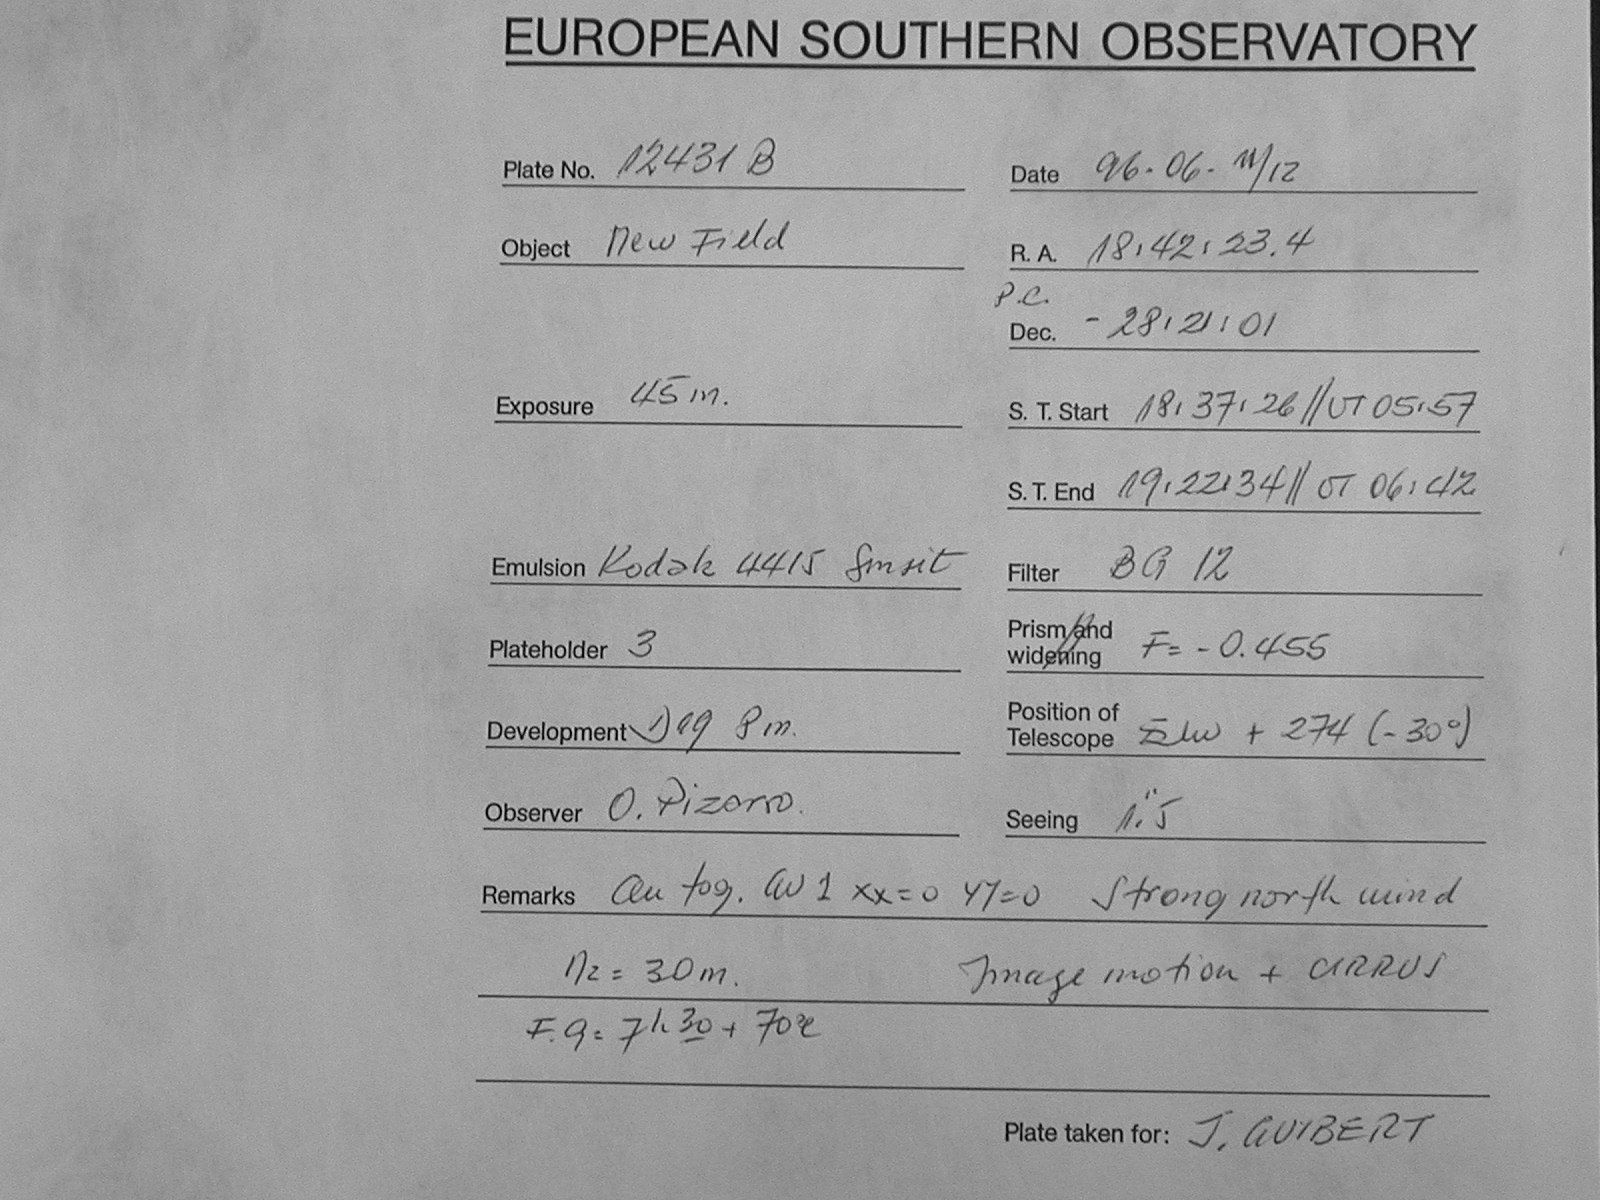 EUROPEAN SOUTHERN OBSERVATORY
Plate No. 12431 B
Date 96-06-11/12
Object New Field
R. A. 18:42:23.4
P.C.
Dec. -28:21:01
Exposure 45 m.
S. T. Start 18:37:26//UT 05:57
S. T. End 19:22:34// UT 06:42
Emulsion Kodak 4415
Filter BG 12
Plateholder 3
Prism and widening F= -0.455
Development D19 8 m.
Position of Telescope + 274 (-30°)
Observer O. Pizarro.
Seeing 1."5
Remarks xx=0 YY=0 Strong north wind
N2 = 30 m. Image motion + CIRRUS
F.G= 7h 30 + 70
Plate taken for: J. GUIBERT